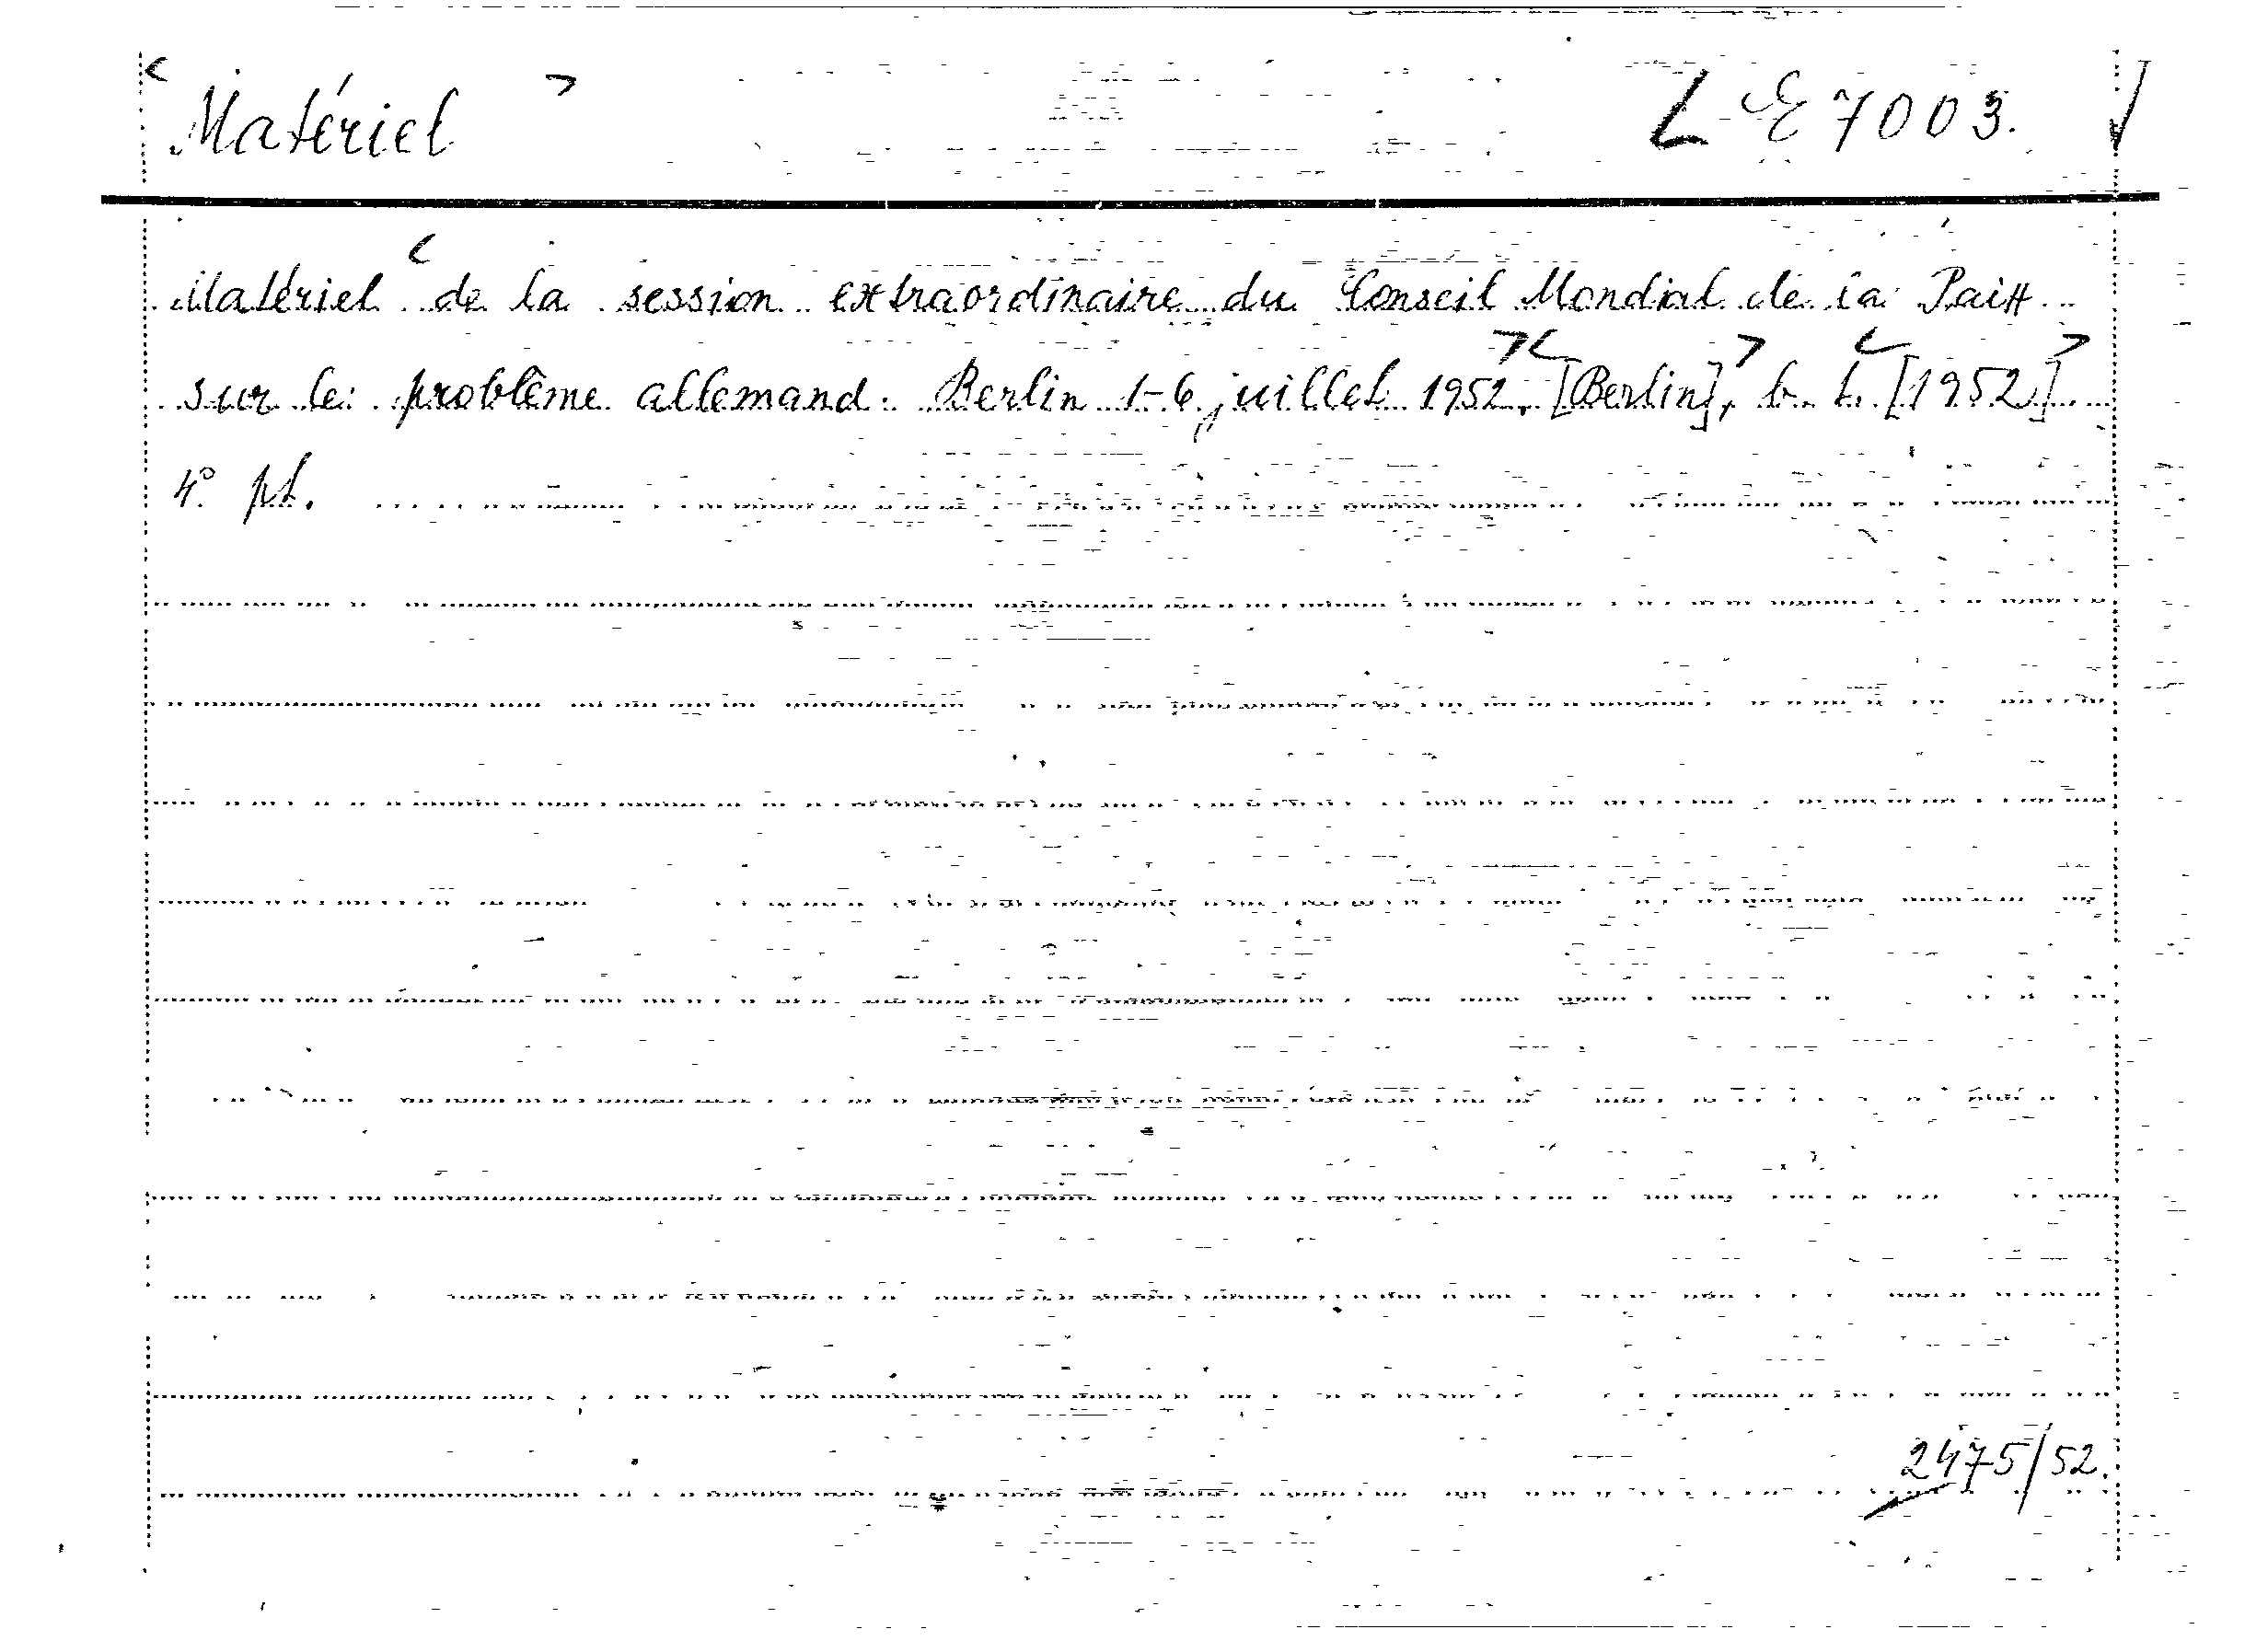 Matériel L E 7003.
Matériel de la session extraordinaire du Conseil Mondial de la Paix
sur le problème allemand. Berlin 1-6 juillet 1952. [Berlin], b. t. [1952]
4° pt.
2475/52.